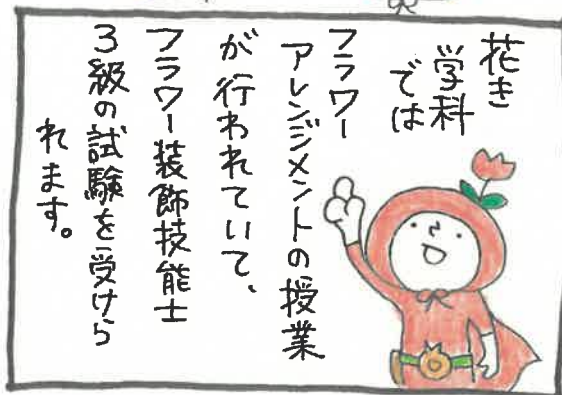 花き
学科
では
フラワー
アレンジメントの授業
が行われていて、
フラワー装飾技能士
3級の試験を受けら
れます。